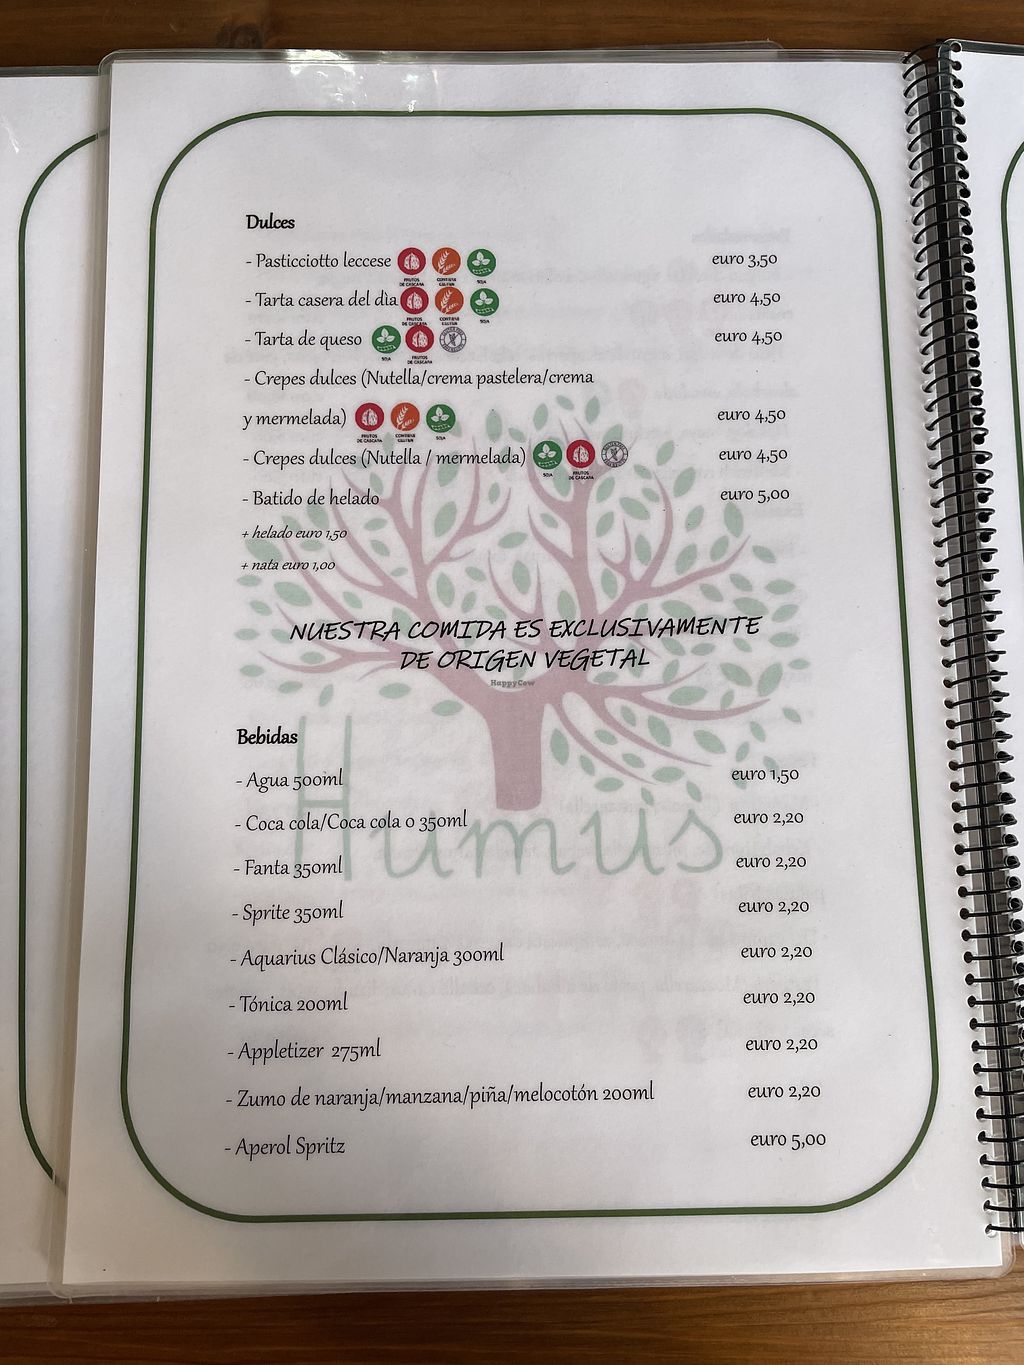 Dulces
- Pasticciotto leccese euro 3,50
FRUTOS DE CASCARA CONTIENE GLUTEN SOJA
- Tarta casera del dìa euro 4,50
FRUTOS DE CASCARA CONTIENE GLUTEN SOJA
- Tarta de queso euro 4,50
SOJA FRUTOS DE CASCARA
- Crepes dulces (Nutella/crema pastelera/crema
y mermelada) euro 4,50
FRUTOS DE CASCARA CONTIENE GLUTEN SOJA
- Crepes dulces (Nutella / mermelada) euro 4,50
SOJA FRUTOS DE CASCARA
- Batido de helado euro 5,00
+ helado euro 1,50
+ nata euro 1,00
NUESTRA COMIDA ES EXCLUSIVAMENTE
DE ORIGEN VEGETAL
HappyCow
Bebidas
- Agua 500ml euro 1,50
- Coca cola/Coca cola 0 350ml euro 2,20
Humus
- Fanta 350ml euro 2,20
- Sprite 350ml euro 2,20
- Aquarius Clásico/Naranja 300ml euro 2,20
- Tónica 200ml euro 2,20
- Appletizer 275ml euro 2,20
- Zumo de naranja/manzana/piña/melocotón 200ml euro 2,20
- Aperol Spritz euro 5,00